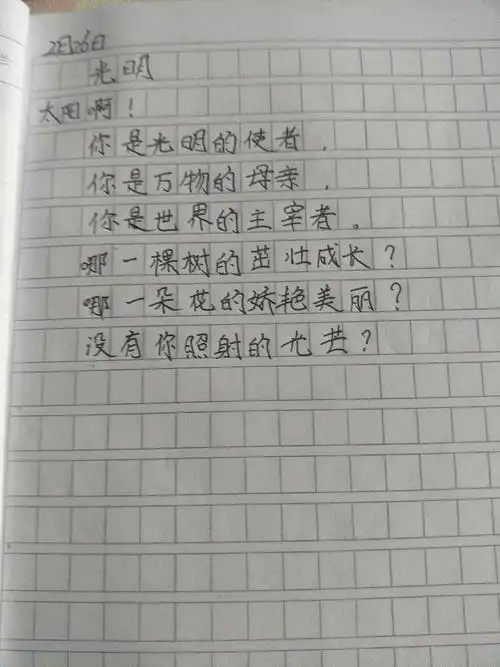 2月26日
光明
太阳啊！
你是光明的使者，
你是万物的母亲，
你是世界的主宰者。
哪一棵树的茁壮成长？
哪一朵花的娇艳美丽？
没有你照射的光芒？